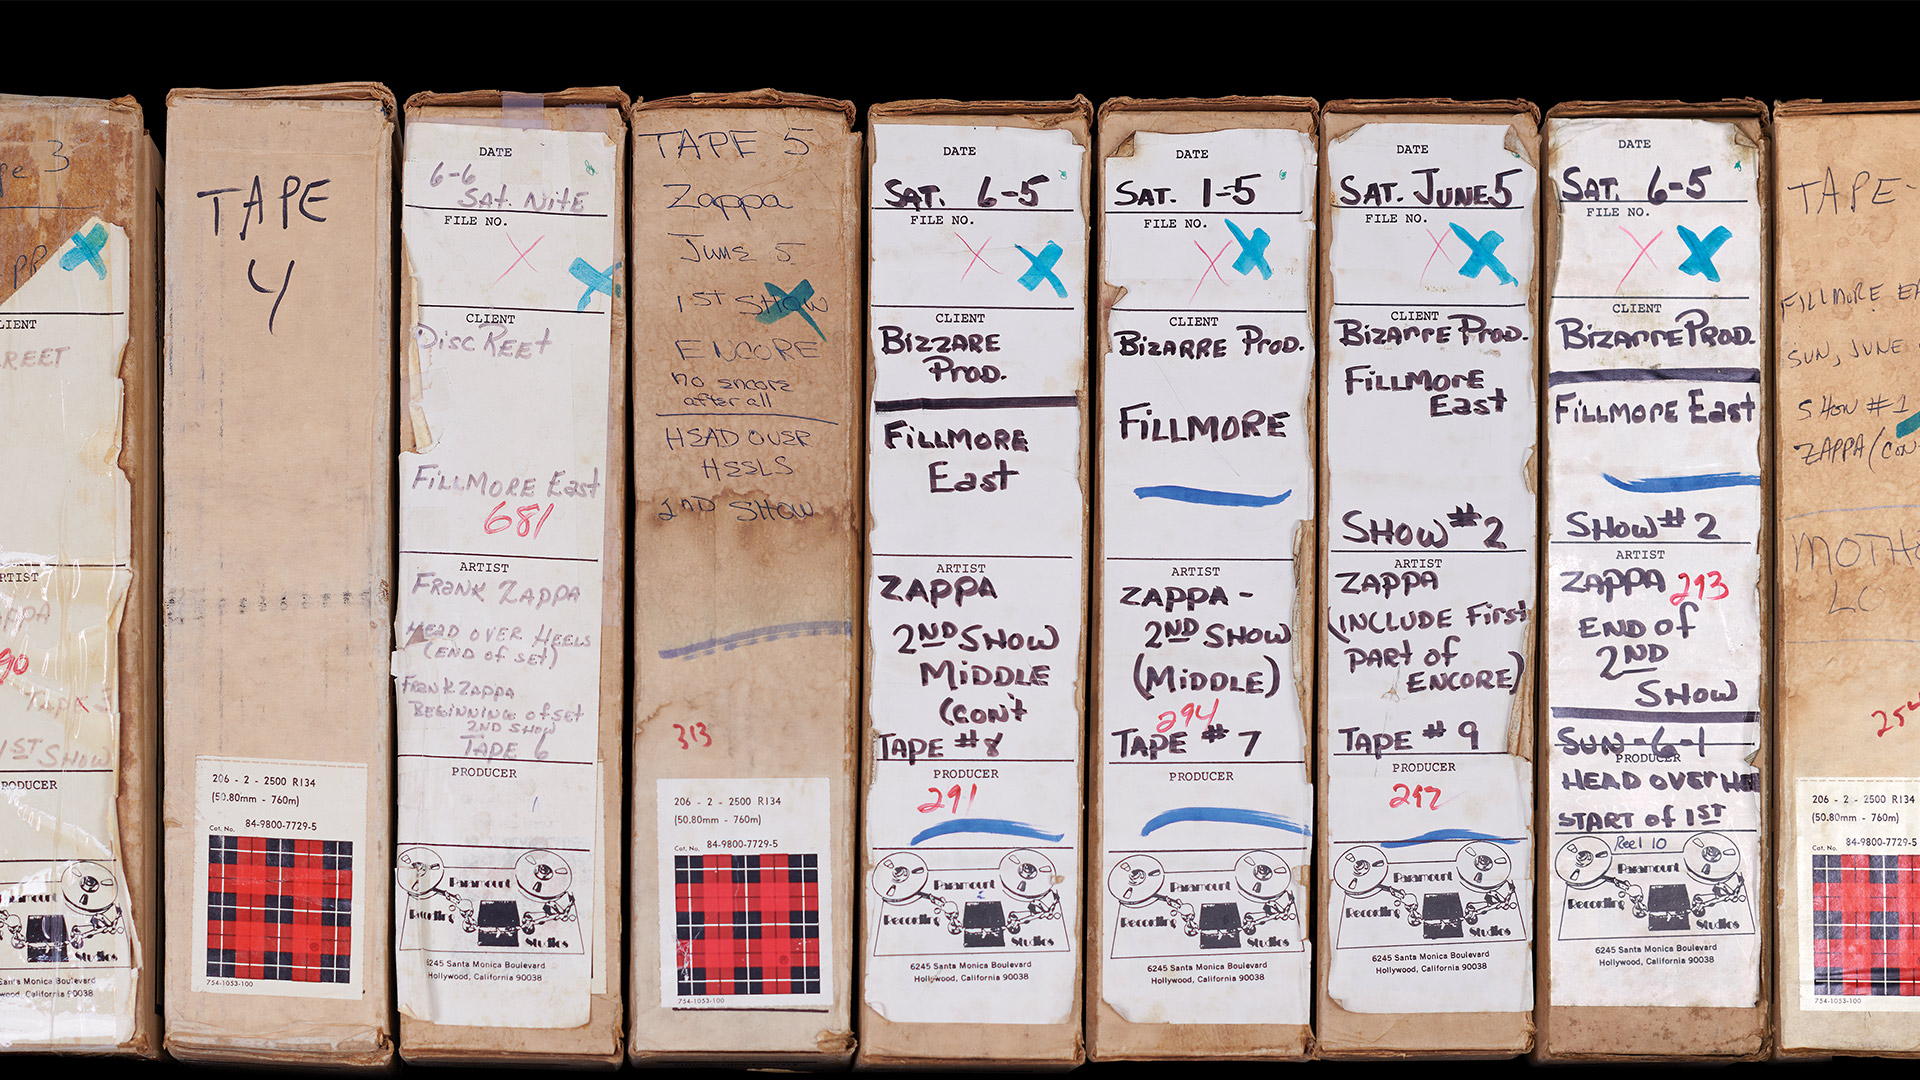 3
PP
CLIENT
REET
ARTIST
APPA
90
1ST SHOW
PRODUCER
Paramount
Recording
Studios
Santa Monica Boulevard
California 90038
TAPE
4
206 - 2 - 2500 R134
(50.80mm - 760m)
Cat. No. 84-9800-7729-5
754-1053-100
DATE
6-6
Sat. Nite
FILE NO.
CLIENT
Disc Reet
Fillmore East
681
ARTIST
Frank Zappa
Head over Heels
(End of Set)
Frank Zappa
Beginning of set
2nd Show
Tape 6
PRODUCER
Paramount
Recording
Studios
6245 Santa Monica Boulevard
Hollywood, California 90038
TAPE 5
Zappa
June 5
1ST SHOW
ENCORE
no encore
after all
HEAD OVER
HEELS
2ND SHOW
313
206 - 2 - 2500 R134
(50.80mm - 760m)
Cat. No. 84-9800-7729-5
754-1053-100
DATE
Sat. 6-5
FILE NO.
CLIENT
Bizzare
Prod.
Fillmore
East
ARTIST
Zappa
2ND Show
Middle
(Con't
Tape #8
PRODUCER
291
Paramount
Recording
Studios
6245 Santa Monica Boulevard
Hollywood, California 90038
DATE
Sat. 1-5
FILE NO.
CLIENT
Bizarre Prod.
Fillmore
ARTIST
Zappa -
2ND Show
(Middle)
294
Tape #7
PRODUCER
Paramount
Recording
Studios
6245 Santa Monica Boulevard
Hollywood, California 90038
DATE
Sat. June 5
FILE NO.
CLIENT
Bizarre Prod.
Fillmore
East
Show #2
ARTIST
Zappa
(Include First
part of
Encore)
Tape #9
PRODUCER
292
Paramount
Recording
Studios
6245 Santa Monica Boulevard
Hollywood, California 90038
DATE
Sat. 6-5
FILE NO.
CLIENT
Bizarre Prod.
Fillmore East
Show #2
ARTIST
Zappa 293
End of
2ND
Show
Sun-6-1
PRODUCER
Head over He
Start of 1ST
Reel 10
Paramount
Recording
Studios
6245 Santa Monica Boulevard
Hollywood, California 90038
TAPE-
FILLMORE EA
SUN, JUNE
SHOW #1
ZAPPA (CON
MOTH
LO
206 - 2 - 2500 R134
(50.80mm - 760m)
Cat. No. 84-9800-7729-5
754-1053-100